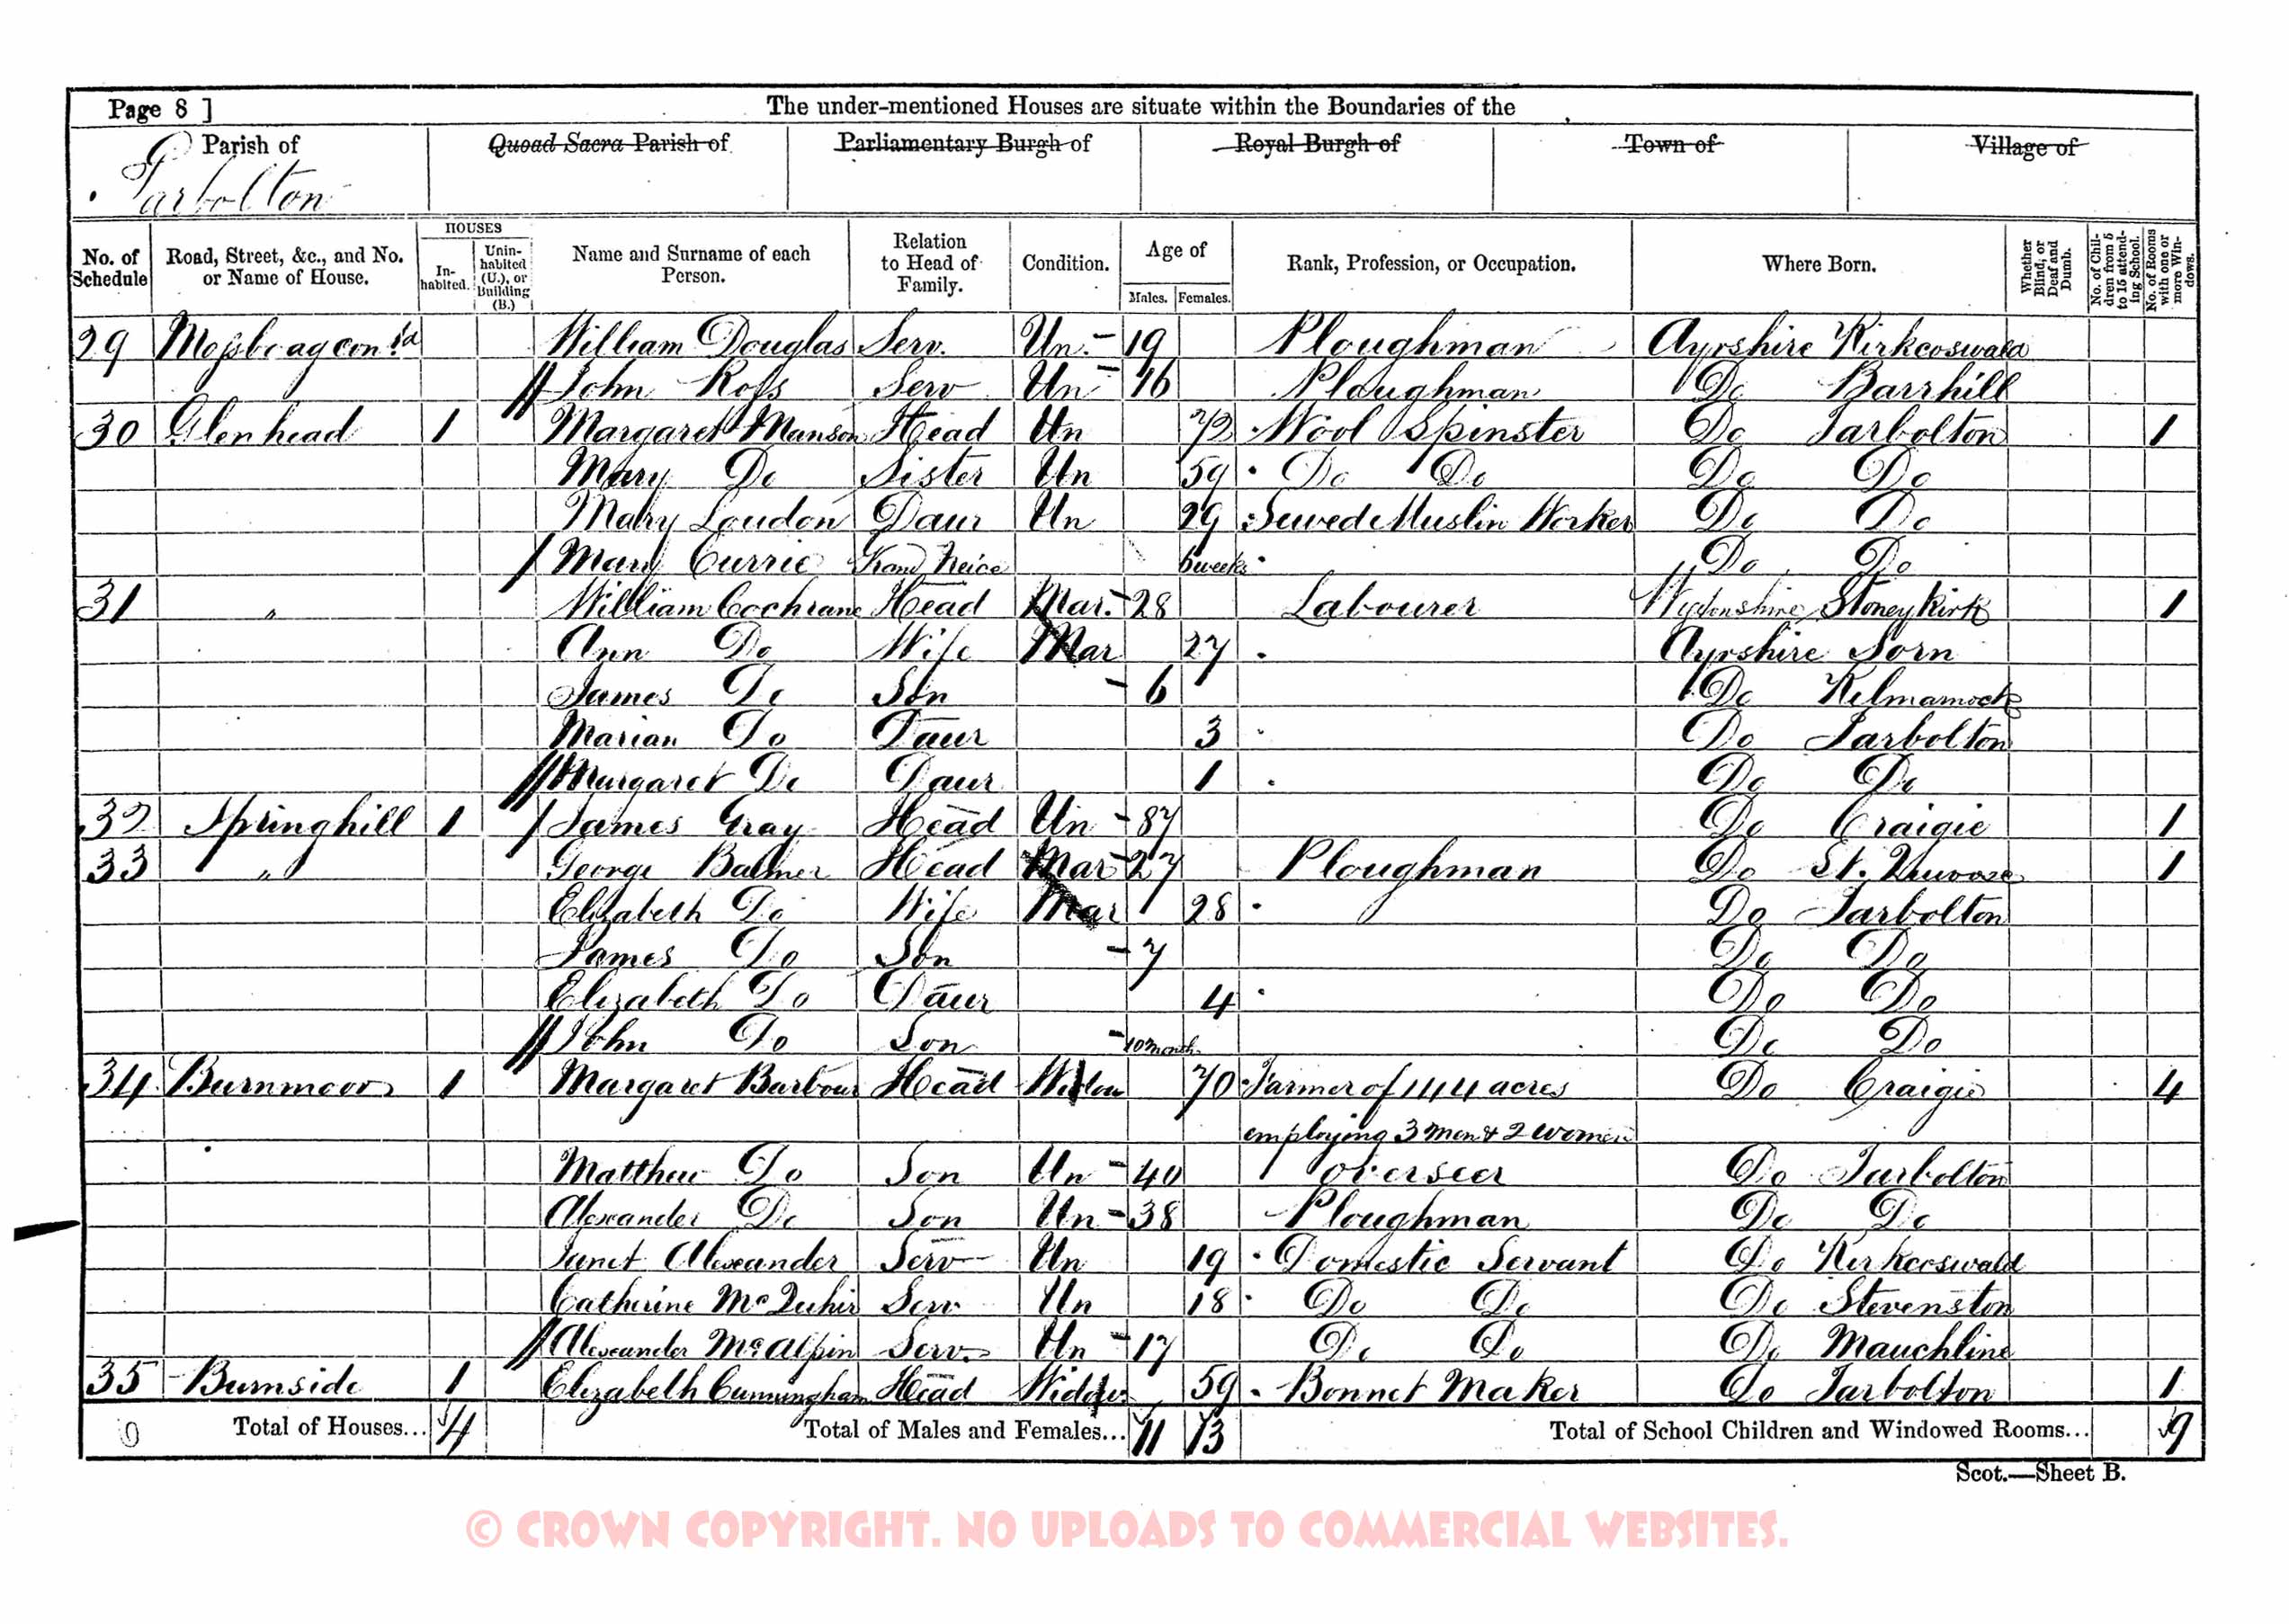 Page 8 ]
The under-mentioned Houses are situate within the Boundaries of the
Parish of Tarbolton
Quoad Sacra Parish of
Parliamentary Burgh of
Royal Burgh of
Town of
Village of
No. of Schedule
Road, Street, &c., and No. or Name of House.
HOUSES
In-habited.
Unin-habited (U.), or Building (B.)
Name and Surname of each Person.
Relation to Head of Family.
Condition.
Age of
Males. Females.
Rank, Profession, or Occupation.
Where Born.
Whether Blind, or Deaf and Dumb.
No. of Chil-dren from 5 to 15 attend-ing School.
No. of Rooms with one or more Win-dows.
29 Mossbogg con.td William Douglas Serv. Un. 19 Ploughman Ayrshire Kirkcoswald
John Ross Serv Un 16 Ploughman Do Barrhill
30 Glenhead 1 Margaret Manson Head Un 72 Wool Spinster Do Tarbolton 1
Mary Do Sister Un 59 Do Do Do Do
Mary Loudon Daur Un 29 Sewed Muslin Worker Do Do
Mary Currie Grand Neice 6 weeks Do Do
31 " William Cochrane Head Mar. 28 Labourer Wigtonshire Stoneykirk 1
Ann Do Wife Mar 27 Ayrshire Sorn
James Do Son 6 Do Kilmarnock
Marian Do Daur 3 Do Tarbolton
Margaret Do Daur 1 Do Do
32 Springhill 1 James Gray Head Un 87 Do Craigie 1
33 " George Balmer Head Mar 27 Ploughman Do St. Quivox 1
Elizabeth Do Wife Mar 28 Do Tarbolton
James Do Son 7 Do Do
Elizabeth Do Daur 4 Do Do
John Do Son 10 month Do Do
34 Burnmoor 1 Margaret Barbour Head Widow 70 Farmer of 144 acres Do Craigie 4
employing 3 men & 2 women
Matthew Do Son Un 40 overseer Do Tarbolton
Alexander Do Son Un 38 Ploughman Do Do
Janet Alexander Serv Un 19 Domestic Servant Do Kirkcoswald
Catherine Serv Un 18 Do Do Do Stevenston
Alexander McAlpin Serv. Un 17 Do Do Do Mauchline
35 Burnside 1 Elizabeth Cunningham Head Widdow 59 Bonnet Maker Do Tarbolton 1
0 Total of Houses... 4 Total of Males and Females... 11 13 Total of School Children and Windowed Rooms... 9
Scot.—Sheet B.
© CROWN COPYRIGHT. NO UPLOADS TO COMMERCIAL WEBSITES.